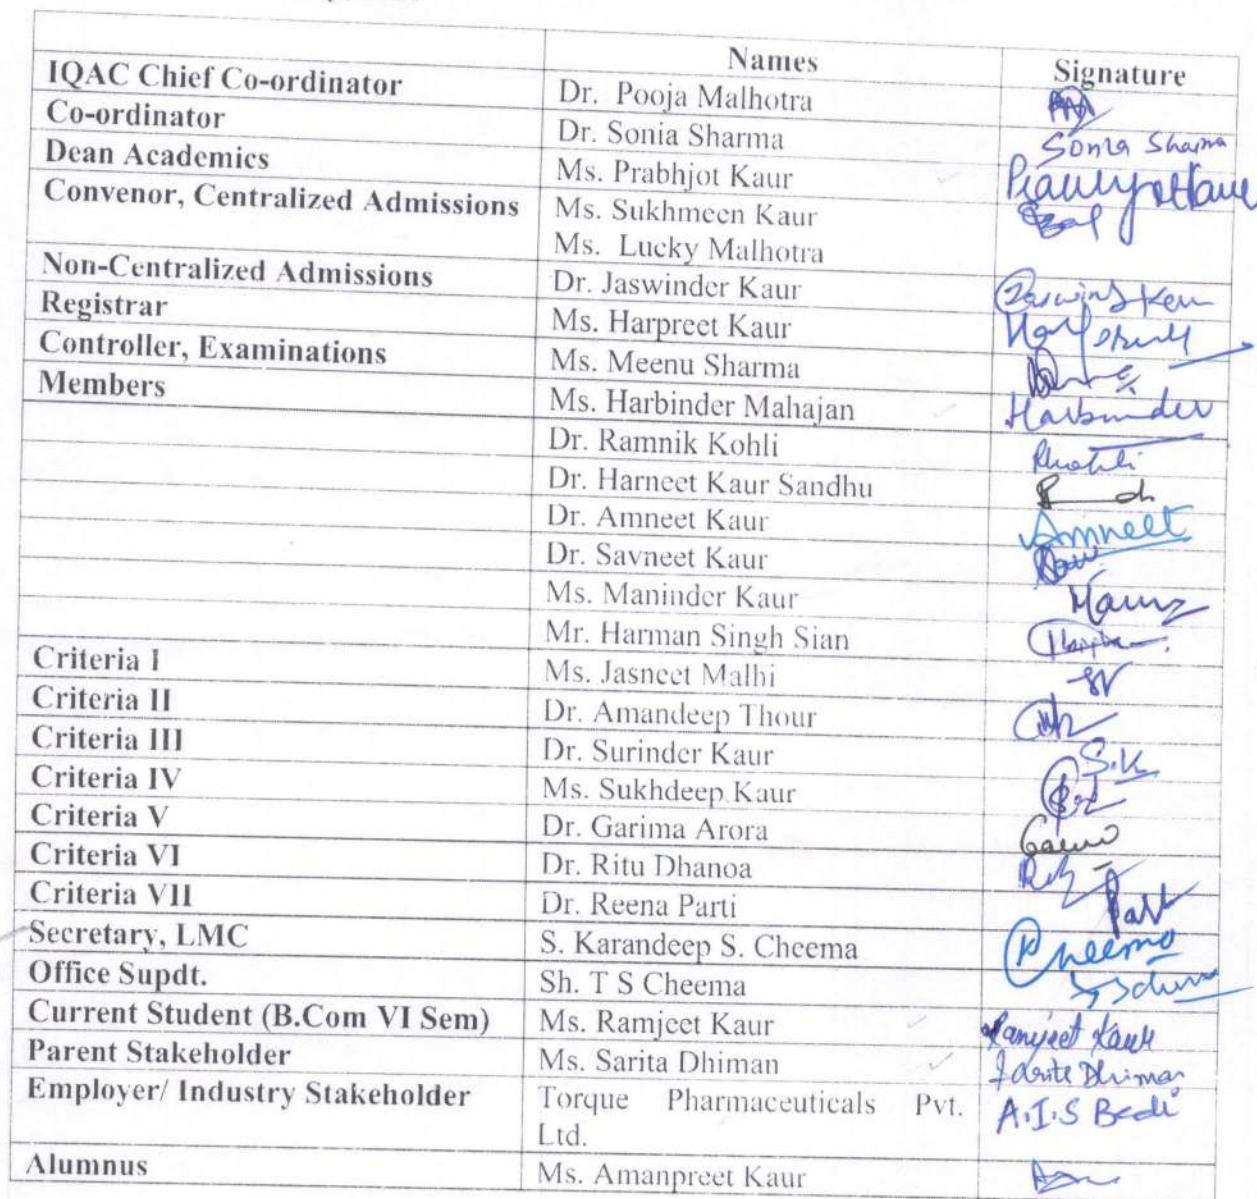 Names Signature
IQAC Chief Co-ordinator Dr. Pooja Malhotra
Co-ordinator Dr. Sonia Sharma Sonia Sharma
Dean Academics Ms. Prabhjot Kaur
Convenor, Centralized Admissions Ms. Sukhmeen Kaur
Ms. Lucky Malhotra
Non-Centralized Admissions Dr. Jaswinder Kaur
Registrar Ms. Harpreet Kaur
Controller, Examinations Ms. Meenu Sharma
Members Ms. Harbinder Mahajan Harbinder
Dr. Ramnik Kohli
Dr. Harneet Kaur Sandhu
Dr. Amneet Kaur Amneet
Dr. Savneet Kaur
Ms. Maninder Kaur
Mr. Harman Singh Sian
Criteria I Ms. Jasneet Malhi
Criteria II Dr. Amandeep Thour
Criteria III Dr. Surinder Kaur S.K
Criteria IV Ms. Sukhdeep Kaur
Criteria V Dr. Garima Arora
Criteria VI Dr. Ritu Dhanoa
Criteria VII Dr. Reena Parti
Secretary, LMC S. Karandeep S. Cheema
Office Supdt. Sh. T S Cheema
Current Student (B.Com VI Sem) Ms. Ramjeet Kaur Ramjeet Kaur
Parent Stakeholder Ms. Sarita Dhiman Sarita Dhiman
Employer/ Industry Stakeholder Torque Pharmaceuticals Pvt. A.I.S Bedi
Ltd.
Alumnus Ms. Amanpreet Kaur